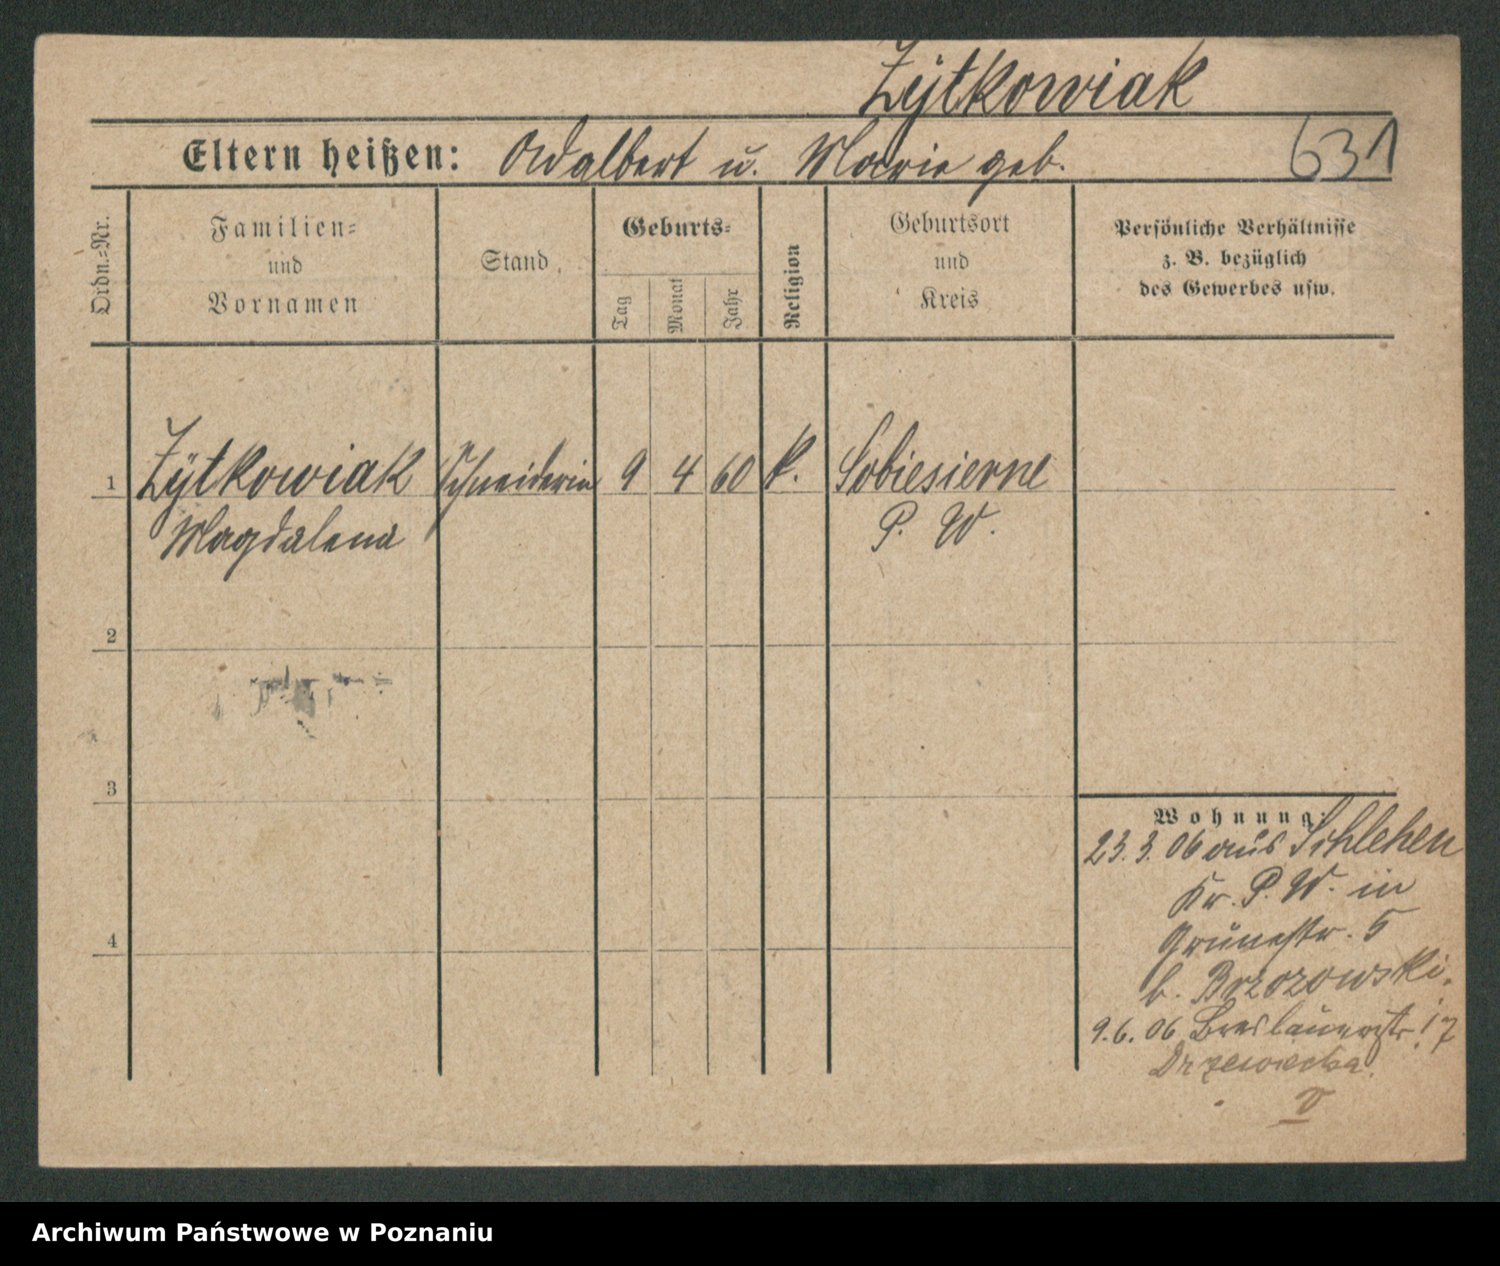 Zÿtkowiak
Eltern heißen: Adalbert u. Marie geb.
631
Ordn.=Nr.
Familien=
und
Vornamen
Stand
Geburts=
Tag
Monat
Jahr
Religion
Geburtsort
und
Kreis
Persönliche Verhältnisse
z. B. bezüglich
des Gewerbes usw.
1 Zÿtkowiak Schneiderin 9 4 60 k. Sobiesierne
Magdalena P. W.
2
3
4
Wohnung:
23.3.06 aus Schlehen
Kr. P. W. in
Grünestr. 5
b. Brzozowski.
9.6.06 Breslauerstr. 17
Drzewiecka.
Archiwum Państwowe w Poznaniu